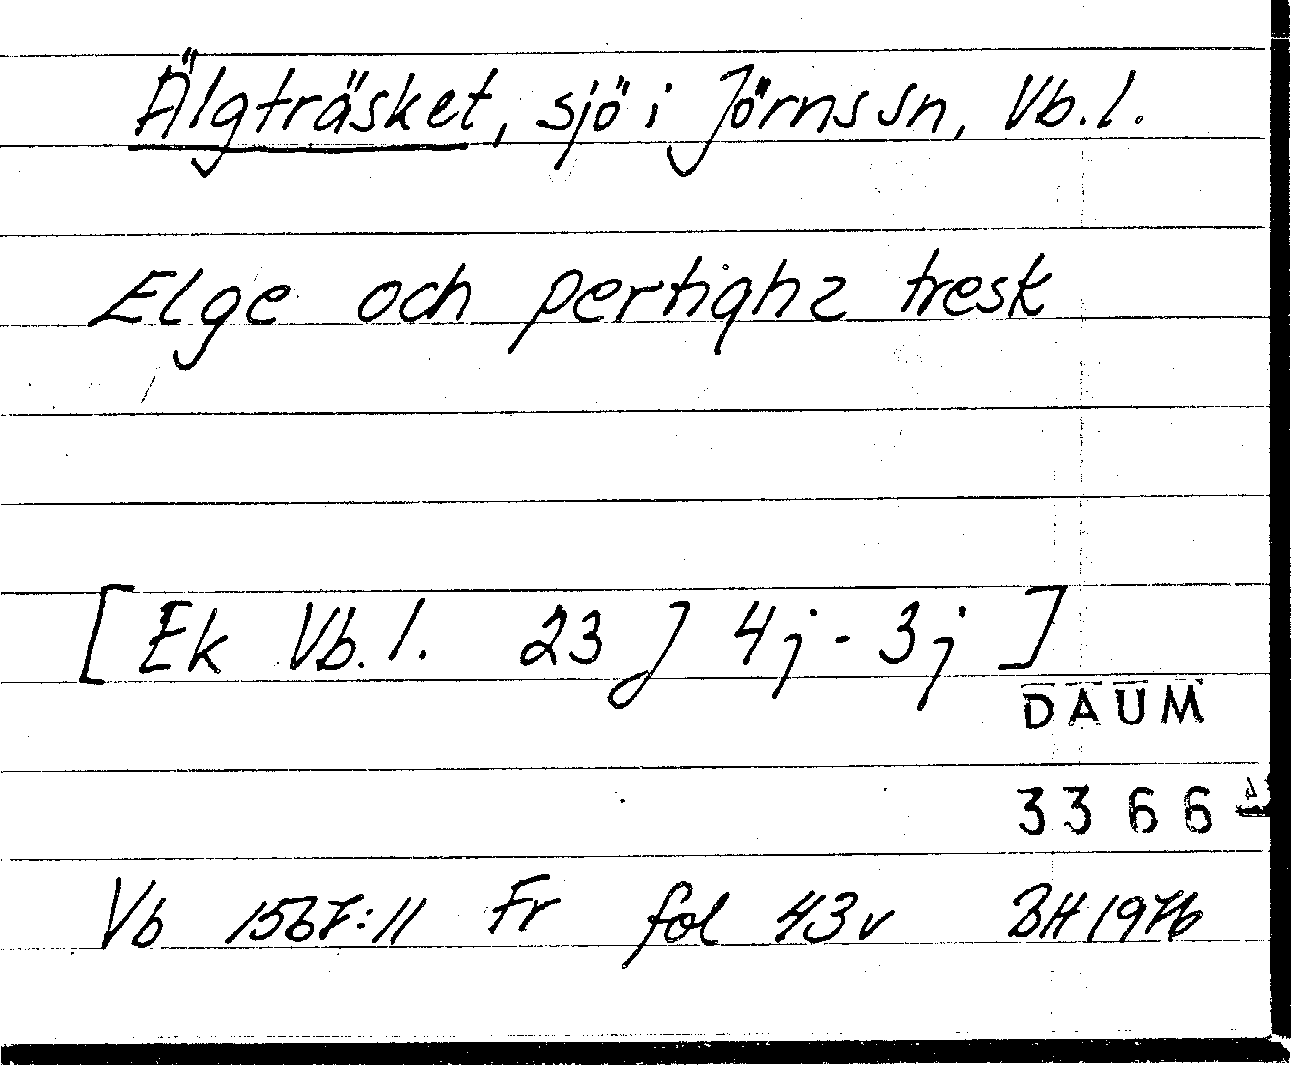 Älgträsket, sjö i Jörns sn, Vb.l.
Elge och pertighz tresk
[Ek Vb.l. 23 J 4j - 3j]
DAUM
3366
Vb 1567:11 Fr fol 43v BH 1976